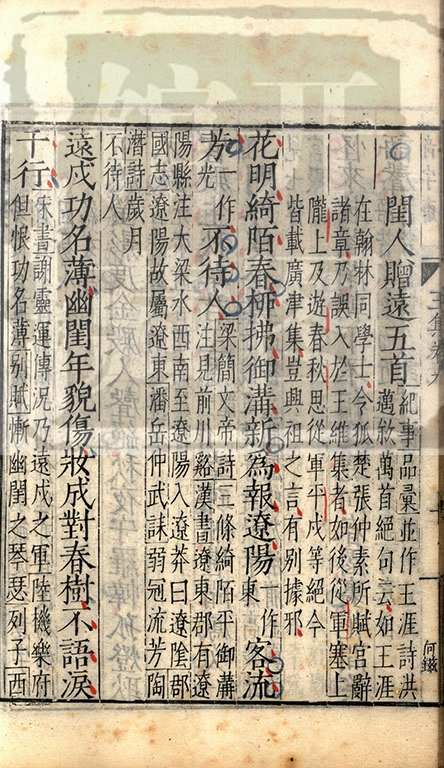 閨人贈遠五首
紀事品彙並作王涯詩洪
邁敘萬首絕句云如王涯
在翰林同學士令狐楚張仲素所賦宮辭
諸章乃誤入於王維集者如後從軍塞上
隴上及遊春秋思從軍平戍等絕今
皆載廣津集豈興祖之言有別據邪
花明綺陌春柳拂御溝新為報遼陽一作東客流
芳一作光不待人
梁簡文帝詩三條綺陌平御溝
注見前川谿漢書遼東郡有遼
陽縣注大梁水西南至遼陽入遼莽曰遼陰郡
國志遼陽故屬遼東潘岳仲武誄弱冠流芳陶
潛詩歲月
不待人
遠戍功名薄幽閨年貌傷妝成對春樹不語淚
千行
宋書謝靈運傳況乃遠戍之軍陸機樂府
但恨功名薄別賦慚幽閨之琴瑟列子西